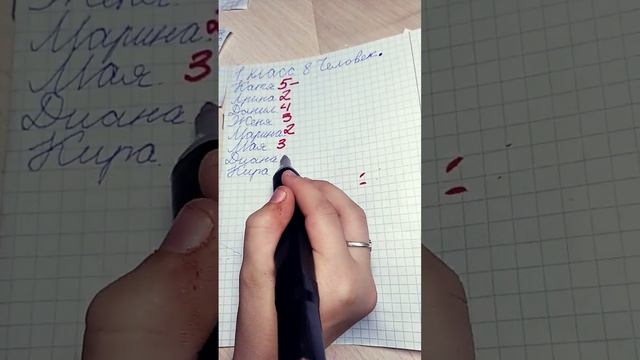 1 класс 8 Человек.
Катя 5-
Арина 2
Данил 4
Женя 3
Марина 2
Мая 3
Диана
Кира